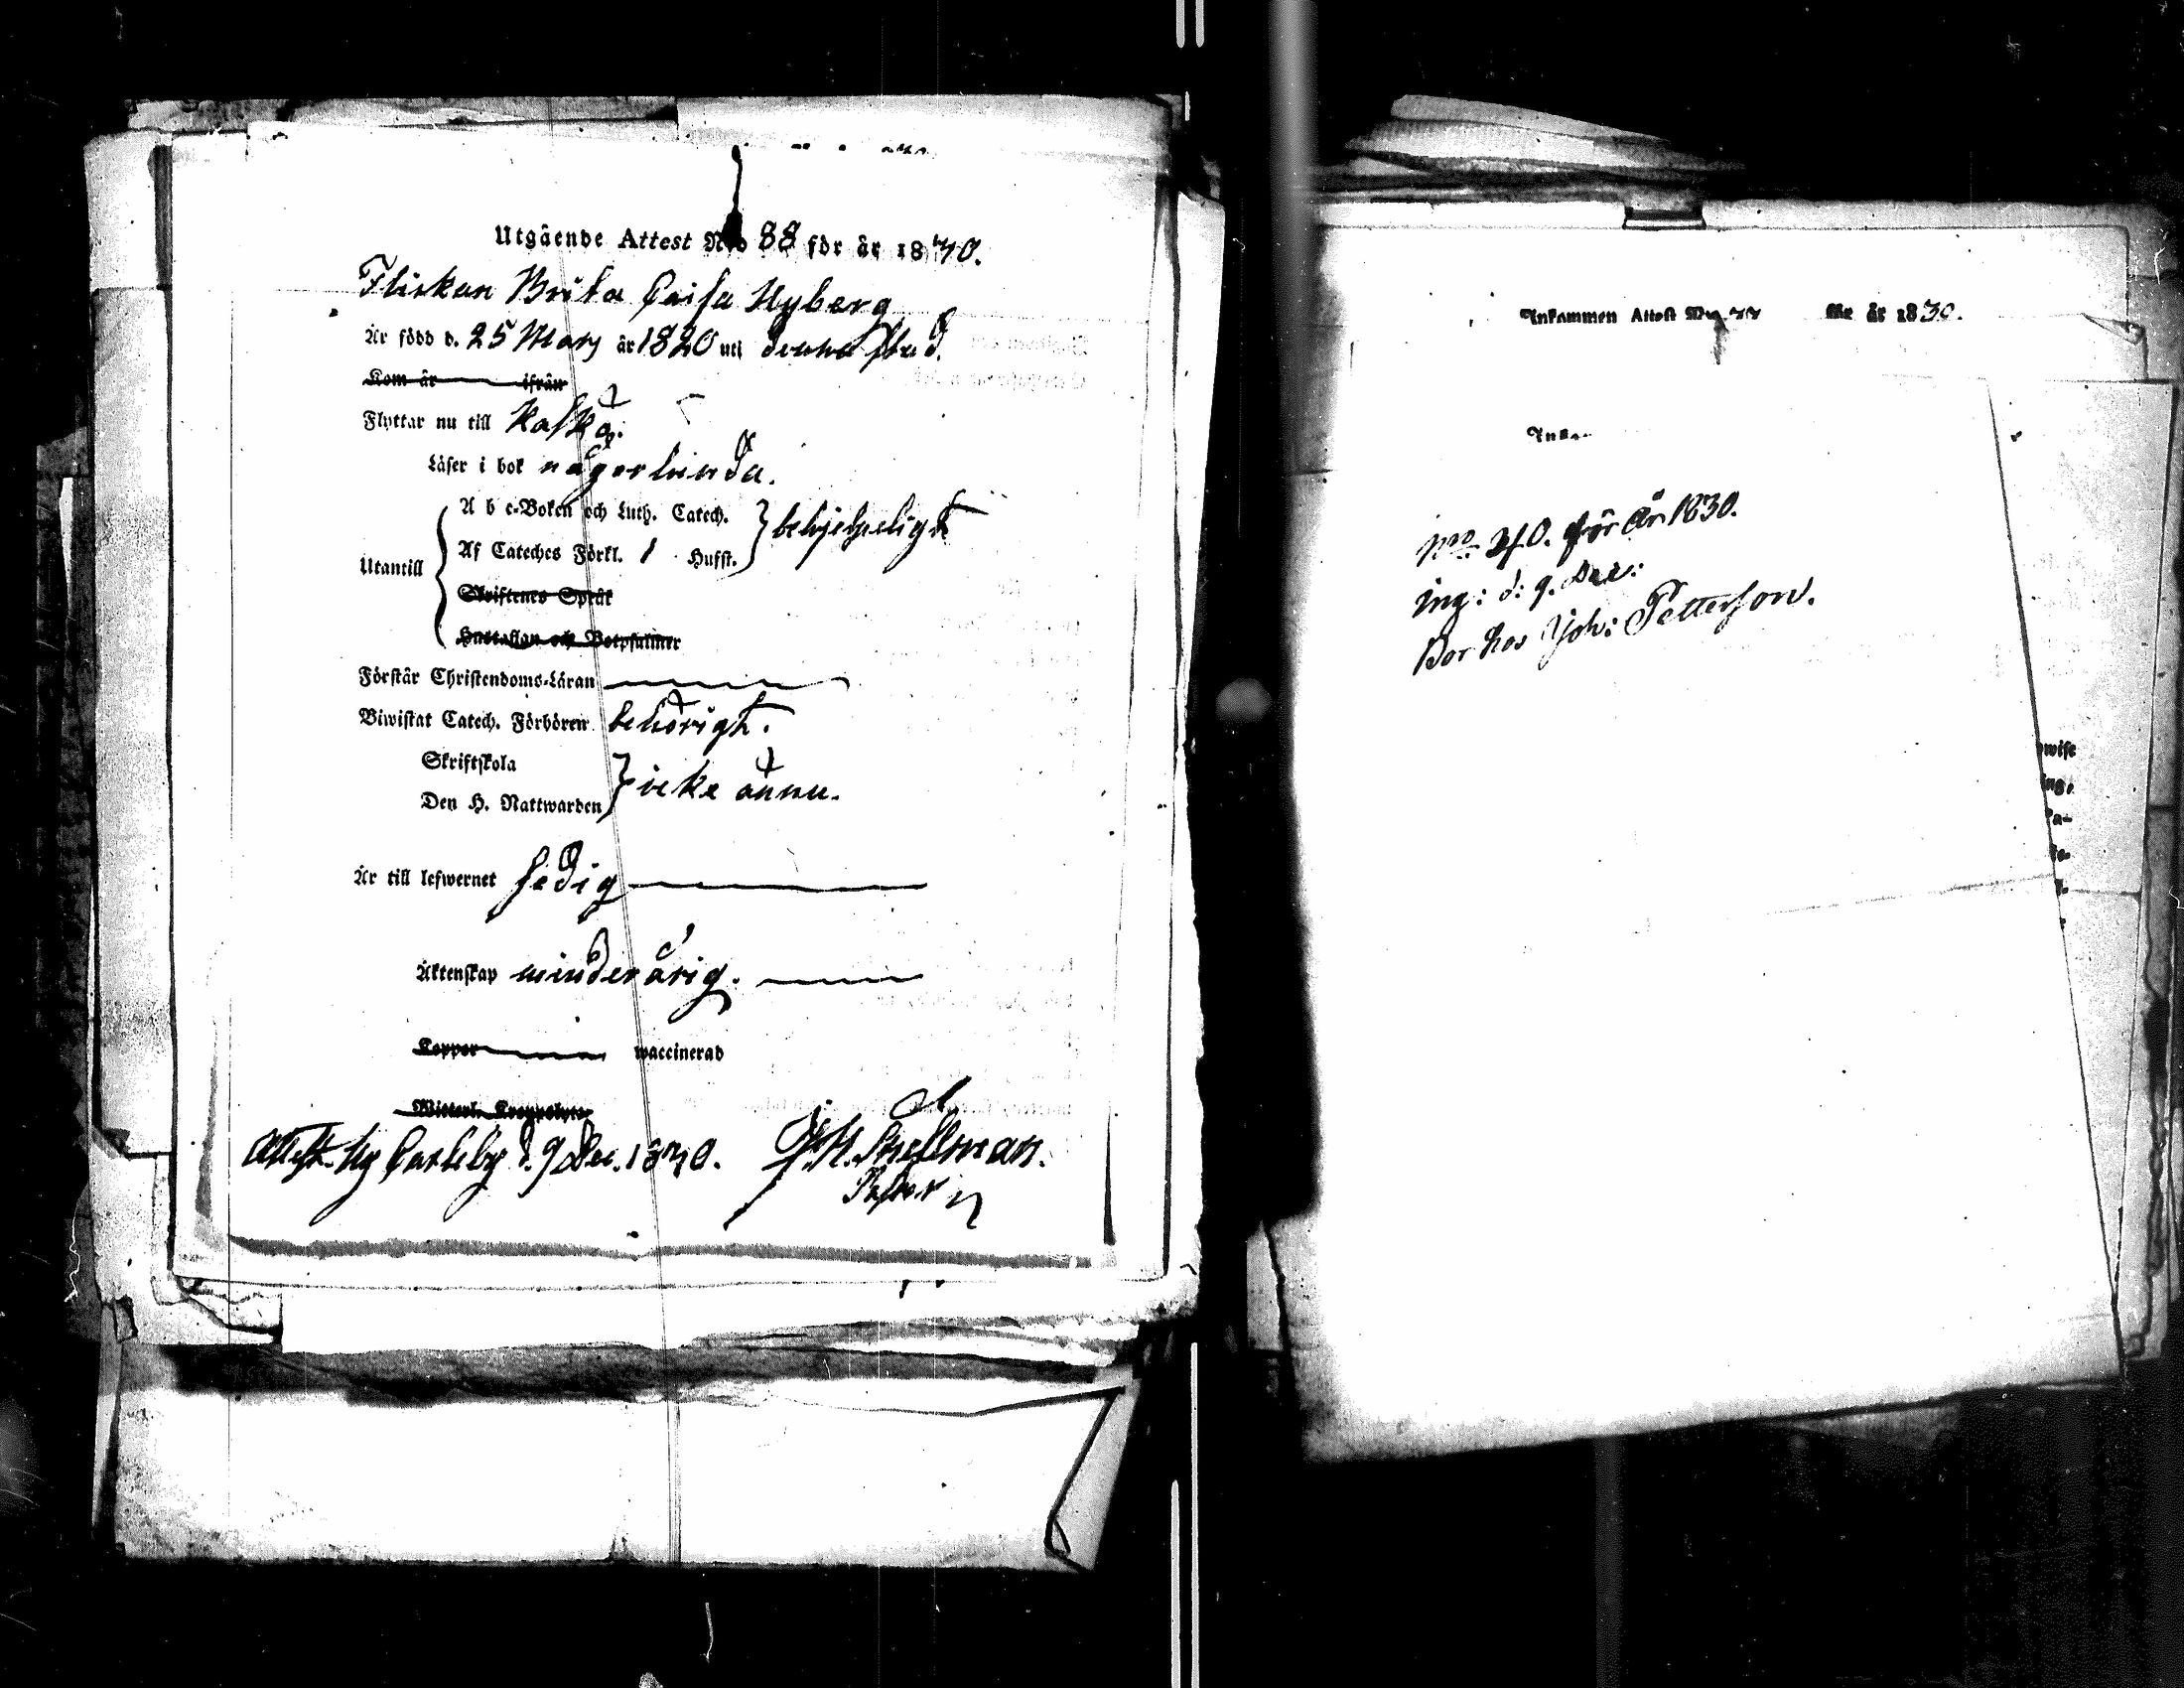 Utgående Attest N:o 88 för år 1830.
Flickan Brita Caisa Nyberg
Är född d. 25 Mars år 1820 uti denna stad.
Kom år ifrån
Flyttar nu till Kaskö.
Läser i bok någorlunda.
A b c-Boken och Luth. Catech.
Af Cateches Förkl. 1 Hufst.
behjelpeligt
Utantill
Skriftenes Språk
Hustaflan och Botpsalmer
Förstår Christendoms-Läran
Biwistat Catech. Förhören behörigt.
Skriftskola
Den H. Nattwarden
icke ännu.
Är till lefwernet sedig
Äktenskap minderårig.
Koppor waccinerad
Witterl. Kroppslyte
Attest. Ny Carleby d. 9 Dec. 1830. Snellman.
Pastor
Inkommen Attest för år 1830.
Inkom
N:o 30. för år 1830.
ing: d: 9. Dec:
Bor hos Joh: Petterson.
wise